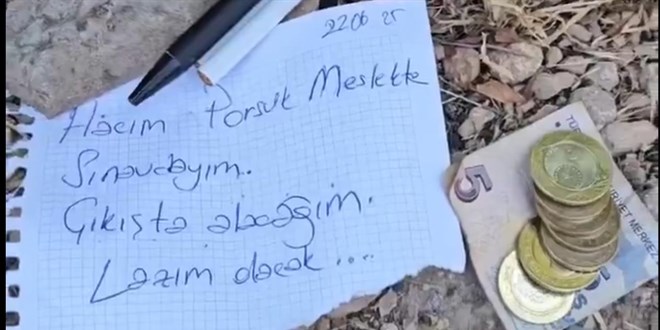 22.06 25
Hacım Porsuk Meslekte
Sınavdayım.
Çıkışta alacağım.
Lazım olacak....
5
TÜR
İYET MERKEZ